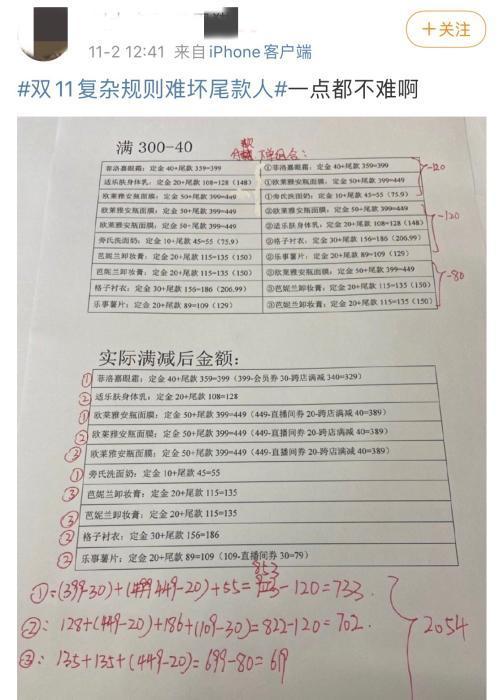 ＋关注
11-2 12:41 来自iPhone客户端
#双11复杂规则难坏尾款人#一点都不难啊
满 300-40
下单组合：
菲洛嘉眼霜：定金 40+尾款 359=399
①菲洛嘉眼霜：定金 40+尾款 359=399
-120
适乐肤身体乳：定金 20+尾款 108=128（148）
①欧莱雅安瓶面膜：定金 50+尾款 399=449
欧莱雅安瓶面膜：定金 50+尾款 399=449
①旁氏洗面奶：定金 10+尾款 45=55（75.9）
欧莱雅安瓶面膜：定金 50+尾款 399=449
②欧莱雅安瓶面膜：定金 50+尾款 399=449
-120
欧莱雅安瓶面膜：定金 50+尾款 399=449
②适乐肤身体乳：定金 20+尾款 108=128（148）
旁氏洗面奶：定金 10+尾款 45=55（75.9）
②格子衬衣：定金 30+尾款 156=186（206.99）
芭妮兰卸妆膏：定金 20+尾款 115=135（150）
②乐事薯片：定金 20+尾款 89=109（129）
芭妮兰卸妆膏：定金 20+尾款 115=135（150）
③欧莱雅安瓶面膜：定金 50+尾款 399=449
-80
格子衬衣：定金 30+尾款 156=186（206.99）
③芭妮兰卸妆膏：定金 20+尾款 115=135（150）
乐事薯片：定金 20+尾款 89=109（129）
③芭妮兰卸妆膏：定金 20+尾款 115=135（150）
实际满减后金额：
① 菲洛嘉眼霜：定金 40+尾款 359=399（399-会员券 30-跨店满减 340=329）
② 适乐肤身体乳：定金 20+尾款 108=128
① 欧莱雅安瓶面膜：定金 50+尾款 399=449（449-直播间券 20-跨店满减 40=389）
② 欧莱雅安瓶面膜：定金 50+尾款 399=449（449-直播间券 20-跨店满减 40=389）
③ 欧莱雅安瓶面膜：定金 50+尾款 399=449（449-直播间券 20-跨店满减 40=389）
① 旁氏洗面奶：定金 10+尾款 45=55
③ 芭妮兰卸妆膏：定金 20+尾款 115=135
③ 芭妮兰卸妆膏：定金 20+尾款 115=135
② 格子衬衣：定金 30+尾款 156=186
② 乐事薯片：定金 20+尾款 89=109（109-直播间券 30=79）
853
①=(399-30)+(449-20)+55=-120=733
②: 128+(449-20)+186+(109-30)=822-120=702
2054
③: 135+135+(449-20)=699-80=619